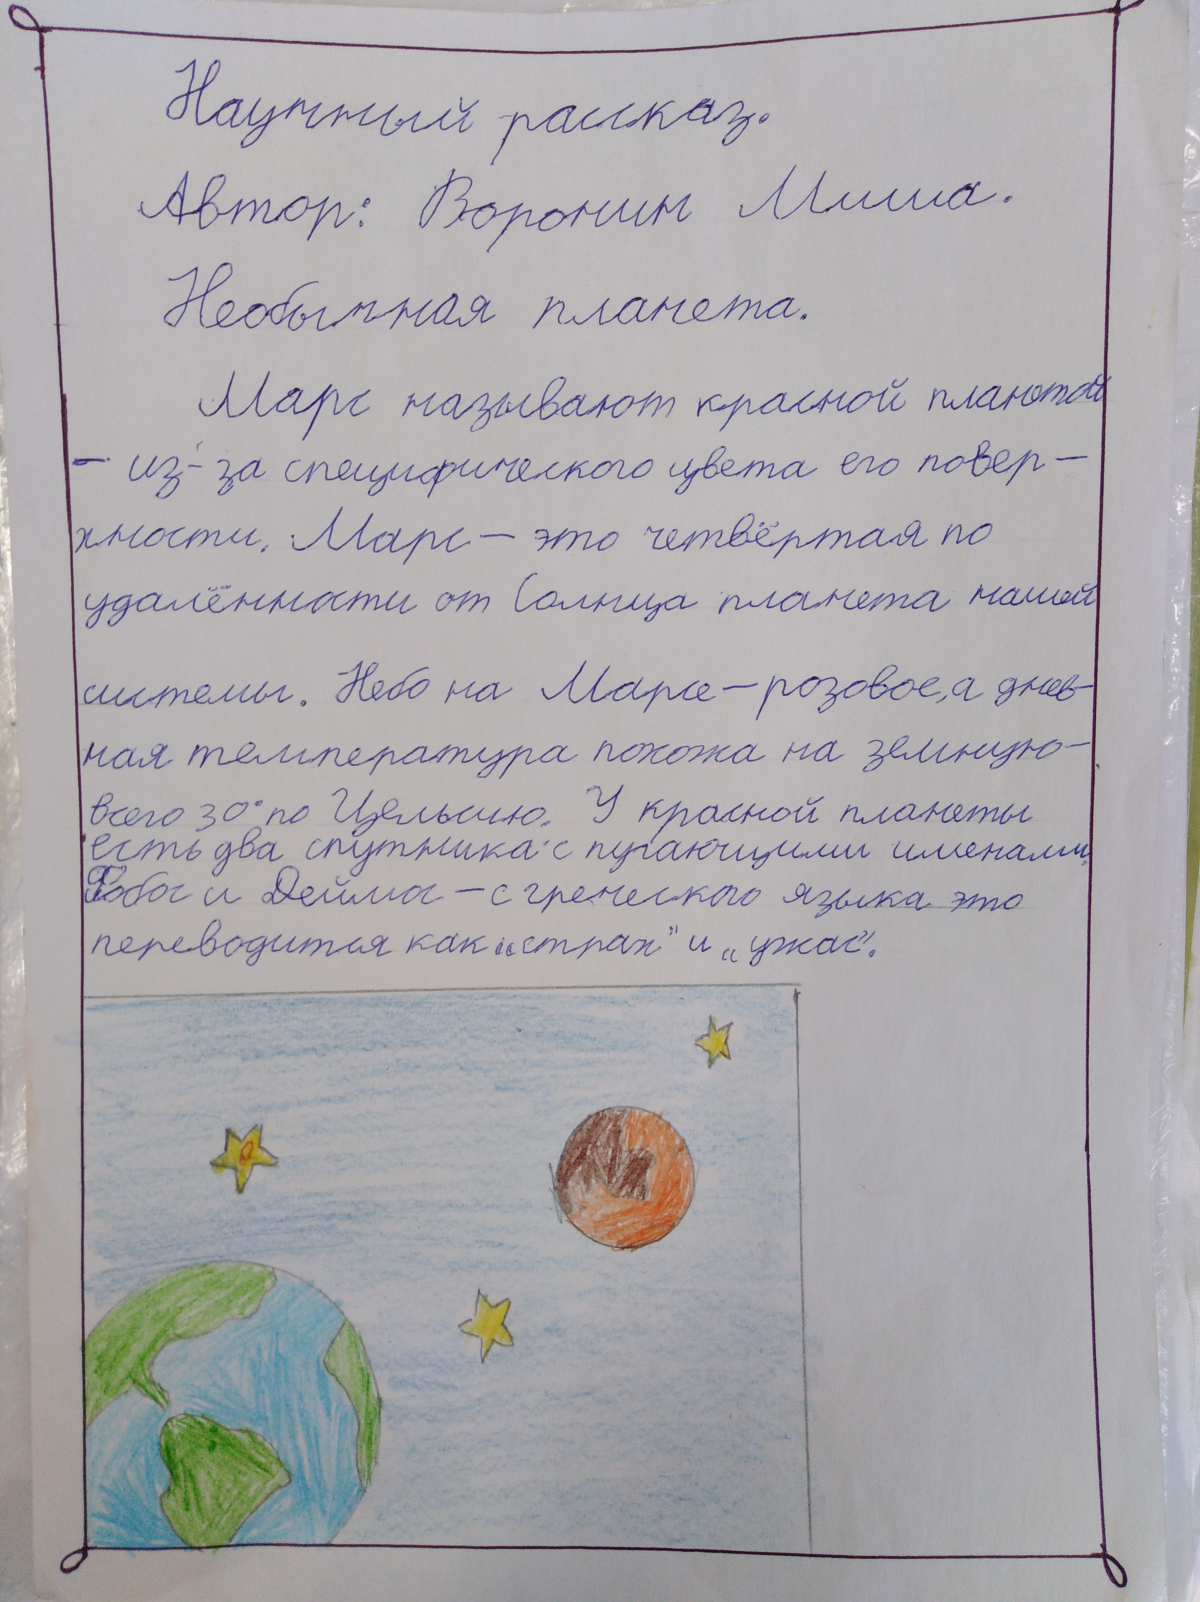 Научный рассказ.
Автор: Воронин Миша.
Необычная планета.
Марс называют красной планетой
- из-за специфического цвета его повер-
хности. Марс - это четвёртая по
удалённости от Солнца планета нашей
системы. Небо на Марсе - розовое, а днев-
ная температура похожа на земную-
всего 30° по Цельсию. У красной планеты
есть два спутника с пугающими именами,
Фобос и Деймос - с греческого языка это
переводится как „страх" и „ужас".